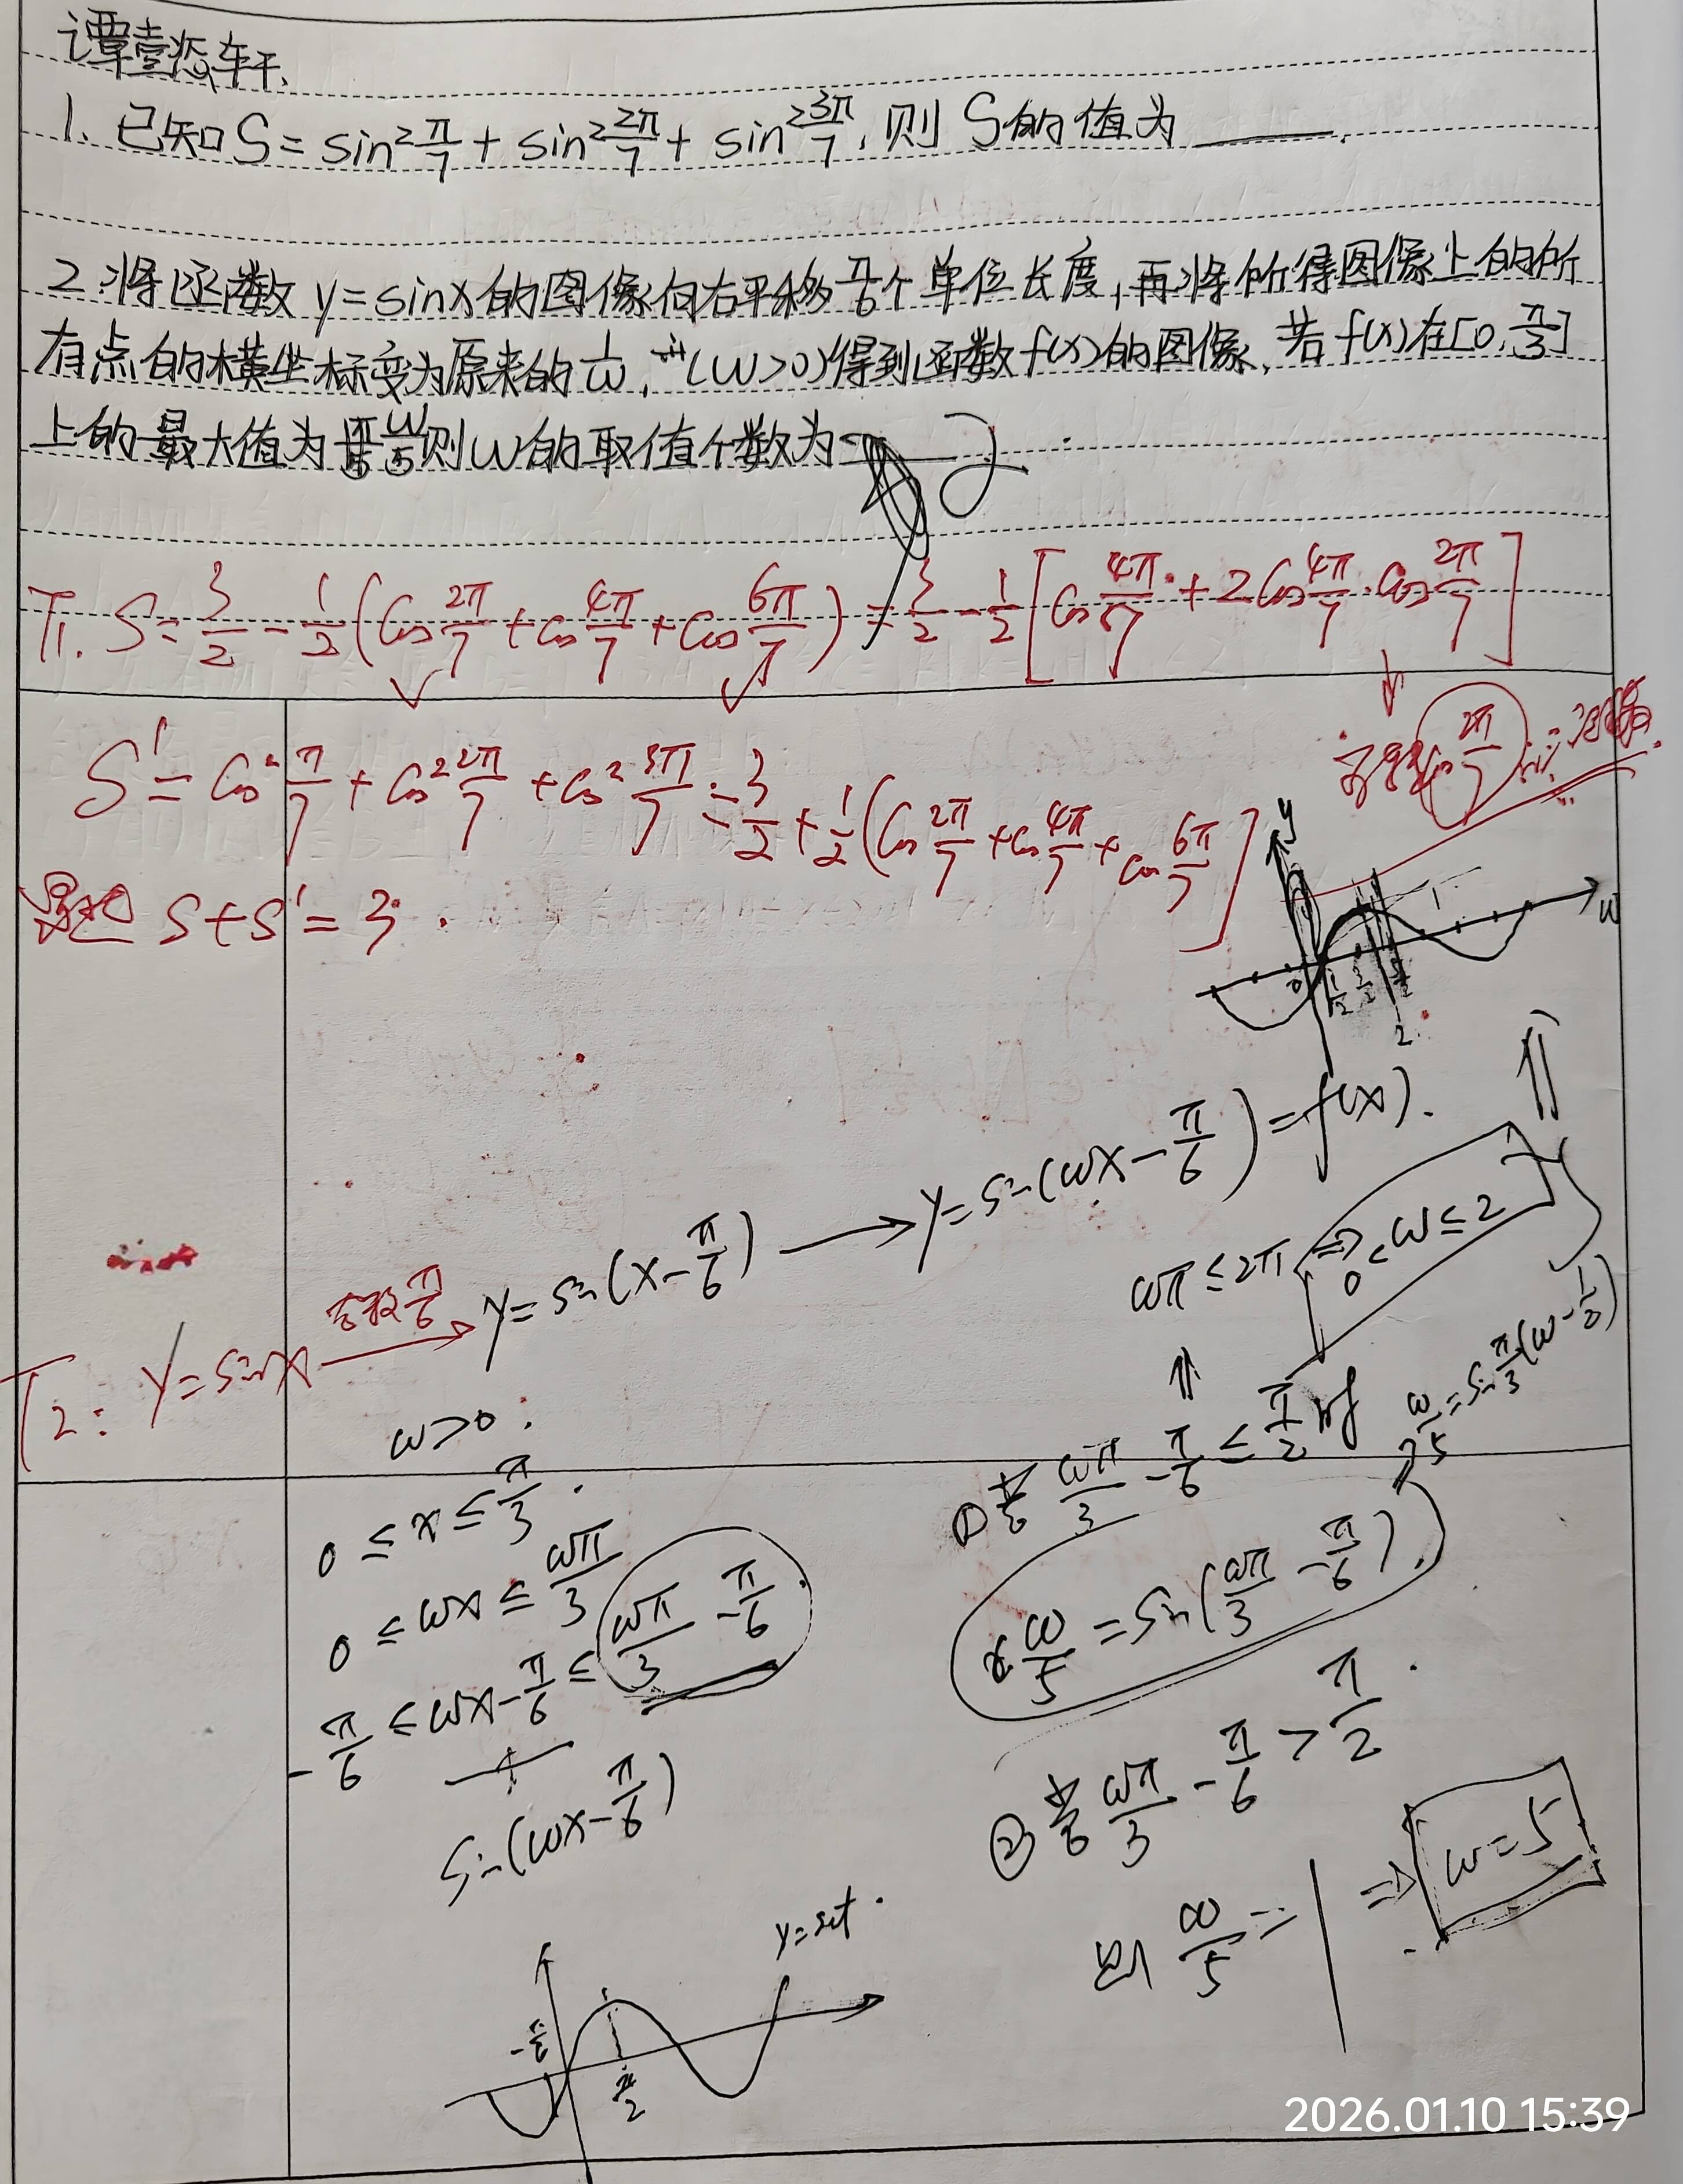 1. 已知 S = sin²π/7 + sin²2π/7 + sin²3π/7, 则 S的值为______.
2. 将函数 y=sinx的图像向右平移π/6个单位长度,再将所得图像上的所
有点的横坐标变为原来的1/ω, (ω>0)得到函数f(x)的图像,若f(x)在[0,π/3]
上的最大值为ω/5则ω的取值个数为 2 .
T1. S = 3/2 - 1/2(cos2π/7 + cos4π/7 + cos6π/7) = 3/2 - 1/2[cos4π/7 + 2cos4π/7·cos2π/7]
S' = cos²π/7 + cos²2π/7 + cos²3π/7 = 3/2 + 1/2(cos2π/7 + cos4π/7 + cos6π/7]
S+S' = 3.
y
ω
0
1/2
2
T2: y=sinx → y=sin(x-π/6) → y=sin(ωx-π/6)=f(x).
π/6
ω>0.
0 ≤ x ≤ π/3.
0 ≤ ωx ≤ ωπ/3
-π/6 ≤ ωx-π/6 ≤ ωπ/3 - π/6
sin(ωx-π/6)
y=sint.
-π/6
π/2
ωπ ≤ 2π ⇒ 0<ω≤2
① 若 ωπ/3 - π/6 ≤ π/2 时
ω/5 = sin π/3(ω-1/2)
ω/5 = sin(ωπ/3 - π/6).
② 若 ωπ/3 - π/6 > π/2.
则 ω/5 = 1 ⇒ ω=5
2026.01.10 15:39